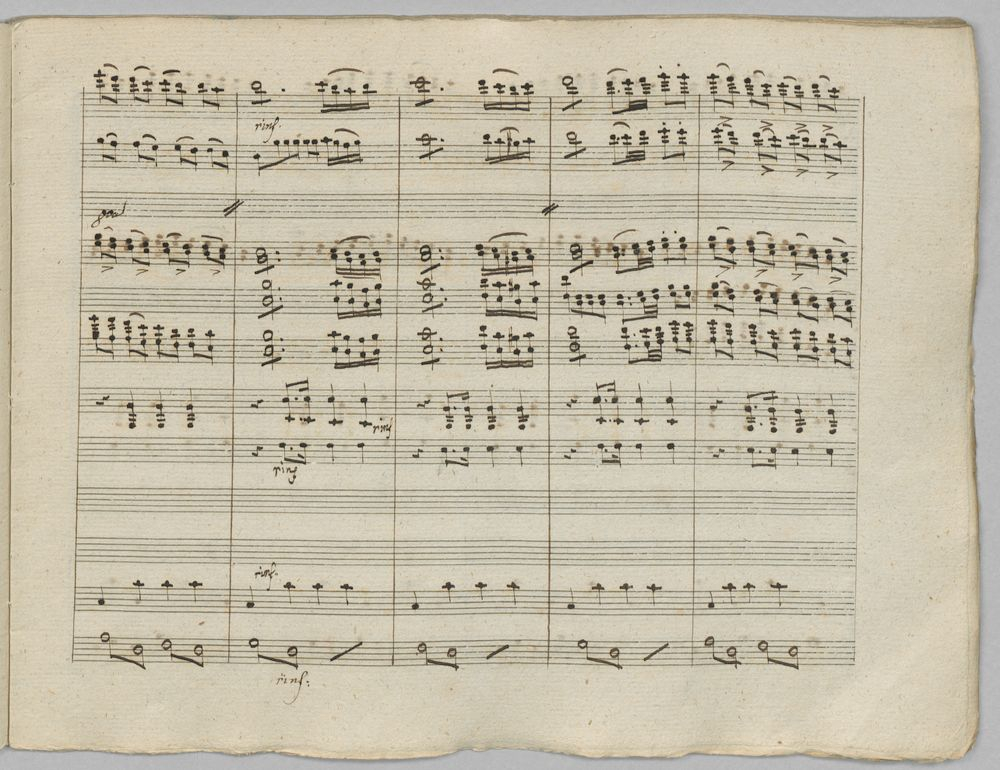 rinf.
rinf
rinf
rinf.
rinf: